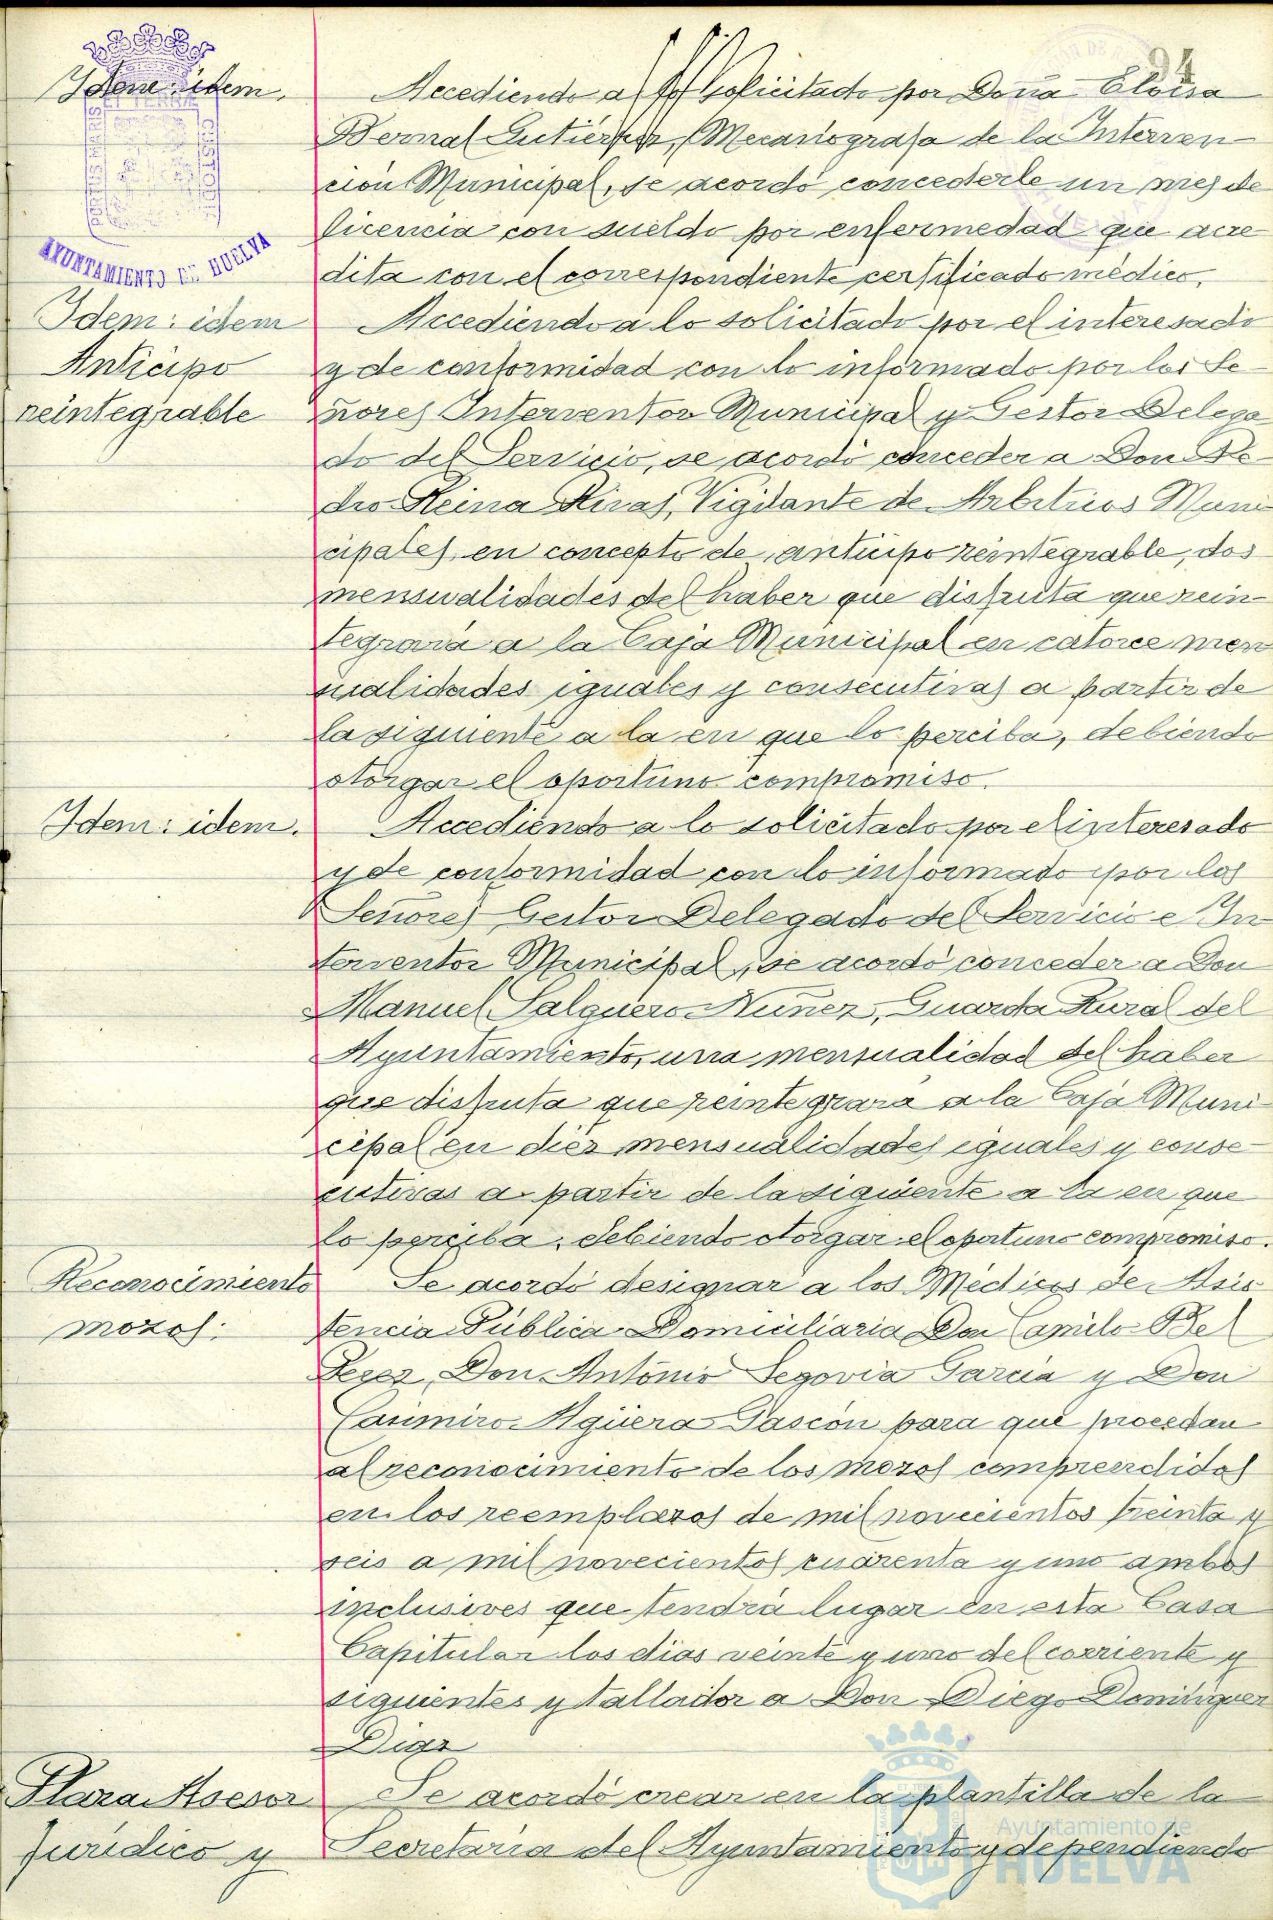 94
Idem: idem.
AYUNTAMIENTO DE HUELVA
Accediendo a lo solicitado por Doña Eloisa
Bernal Gutiérrez, Mecanógrafa de la Interven-
ción Municipal, se acordó concederle un mes de
licencia con sueldo por enfermedad que acre
dita con el correspondiente certificado médico.
Idem: idem
Anticipo
reintegrable
Accediendo a lo solicitado por el interesado
y de conformidad con lo informado por los Se-
ñores Interventor Municipal y Gestor Delega
do del Servicio, se acordó conceder a Don Pe-
dro Reina Rivas, Vigilante de Arbitrios Muni
cipales, en concepto de anticipo reintegrable, dos
mensualidades del haber que disfruta que rein-
tegrará a la Caja Municipal en catorce men
sualidades iguales y consecutivas a partir de
la siguiente a la en que lo perciba, debiendo
otorgar el oportuno compromiso.
Idem: idem.
Accediendo a lo solicitado por el interesado
y de conformidad con lo informado por los
Señores Gestor Delegado del Servicio e In
terventor Municipal, se acordó conceder a Don
Manuel Salguero Nuñez, Guarda Rural del
Ayuntamiento, una mensualidad del haber
que disfruta que reintegrará a la Caja Muni-
cipal en diez mensualidades iguales y conse-
cutivas a partir de la siguiente a la en que
lo perciba, debiendo otorgar el oportuno compromiso.
Reconocimiento
mozos:
Se acordó designar a los Médicos de Asis
tencia Pública Domiciliaria Don Camilo Bel
Don Antonio Segovia García y Don
Casimiro Agüera Pascón para que procedan
al reconocimiento de los mozos comprendidos
en los reemplazos de mil novecientos treinta y
seis a mil novecientos cuarenta y uno ambos
inclusives que tendrá lugar en esta Casa
Capitular los dias veinte y uno del corriente y
siguientes y tallador a Don Diego Dominguez
Diaz
Plaza Asesor
Jurídico y
Se acordó crear en la plantilla de la
Secretaría del Ayuntamiento y dependiendo
Ayuntamiento de
HUELVA